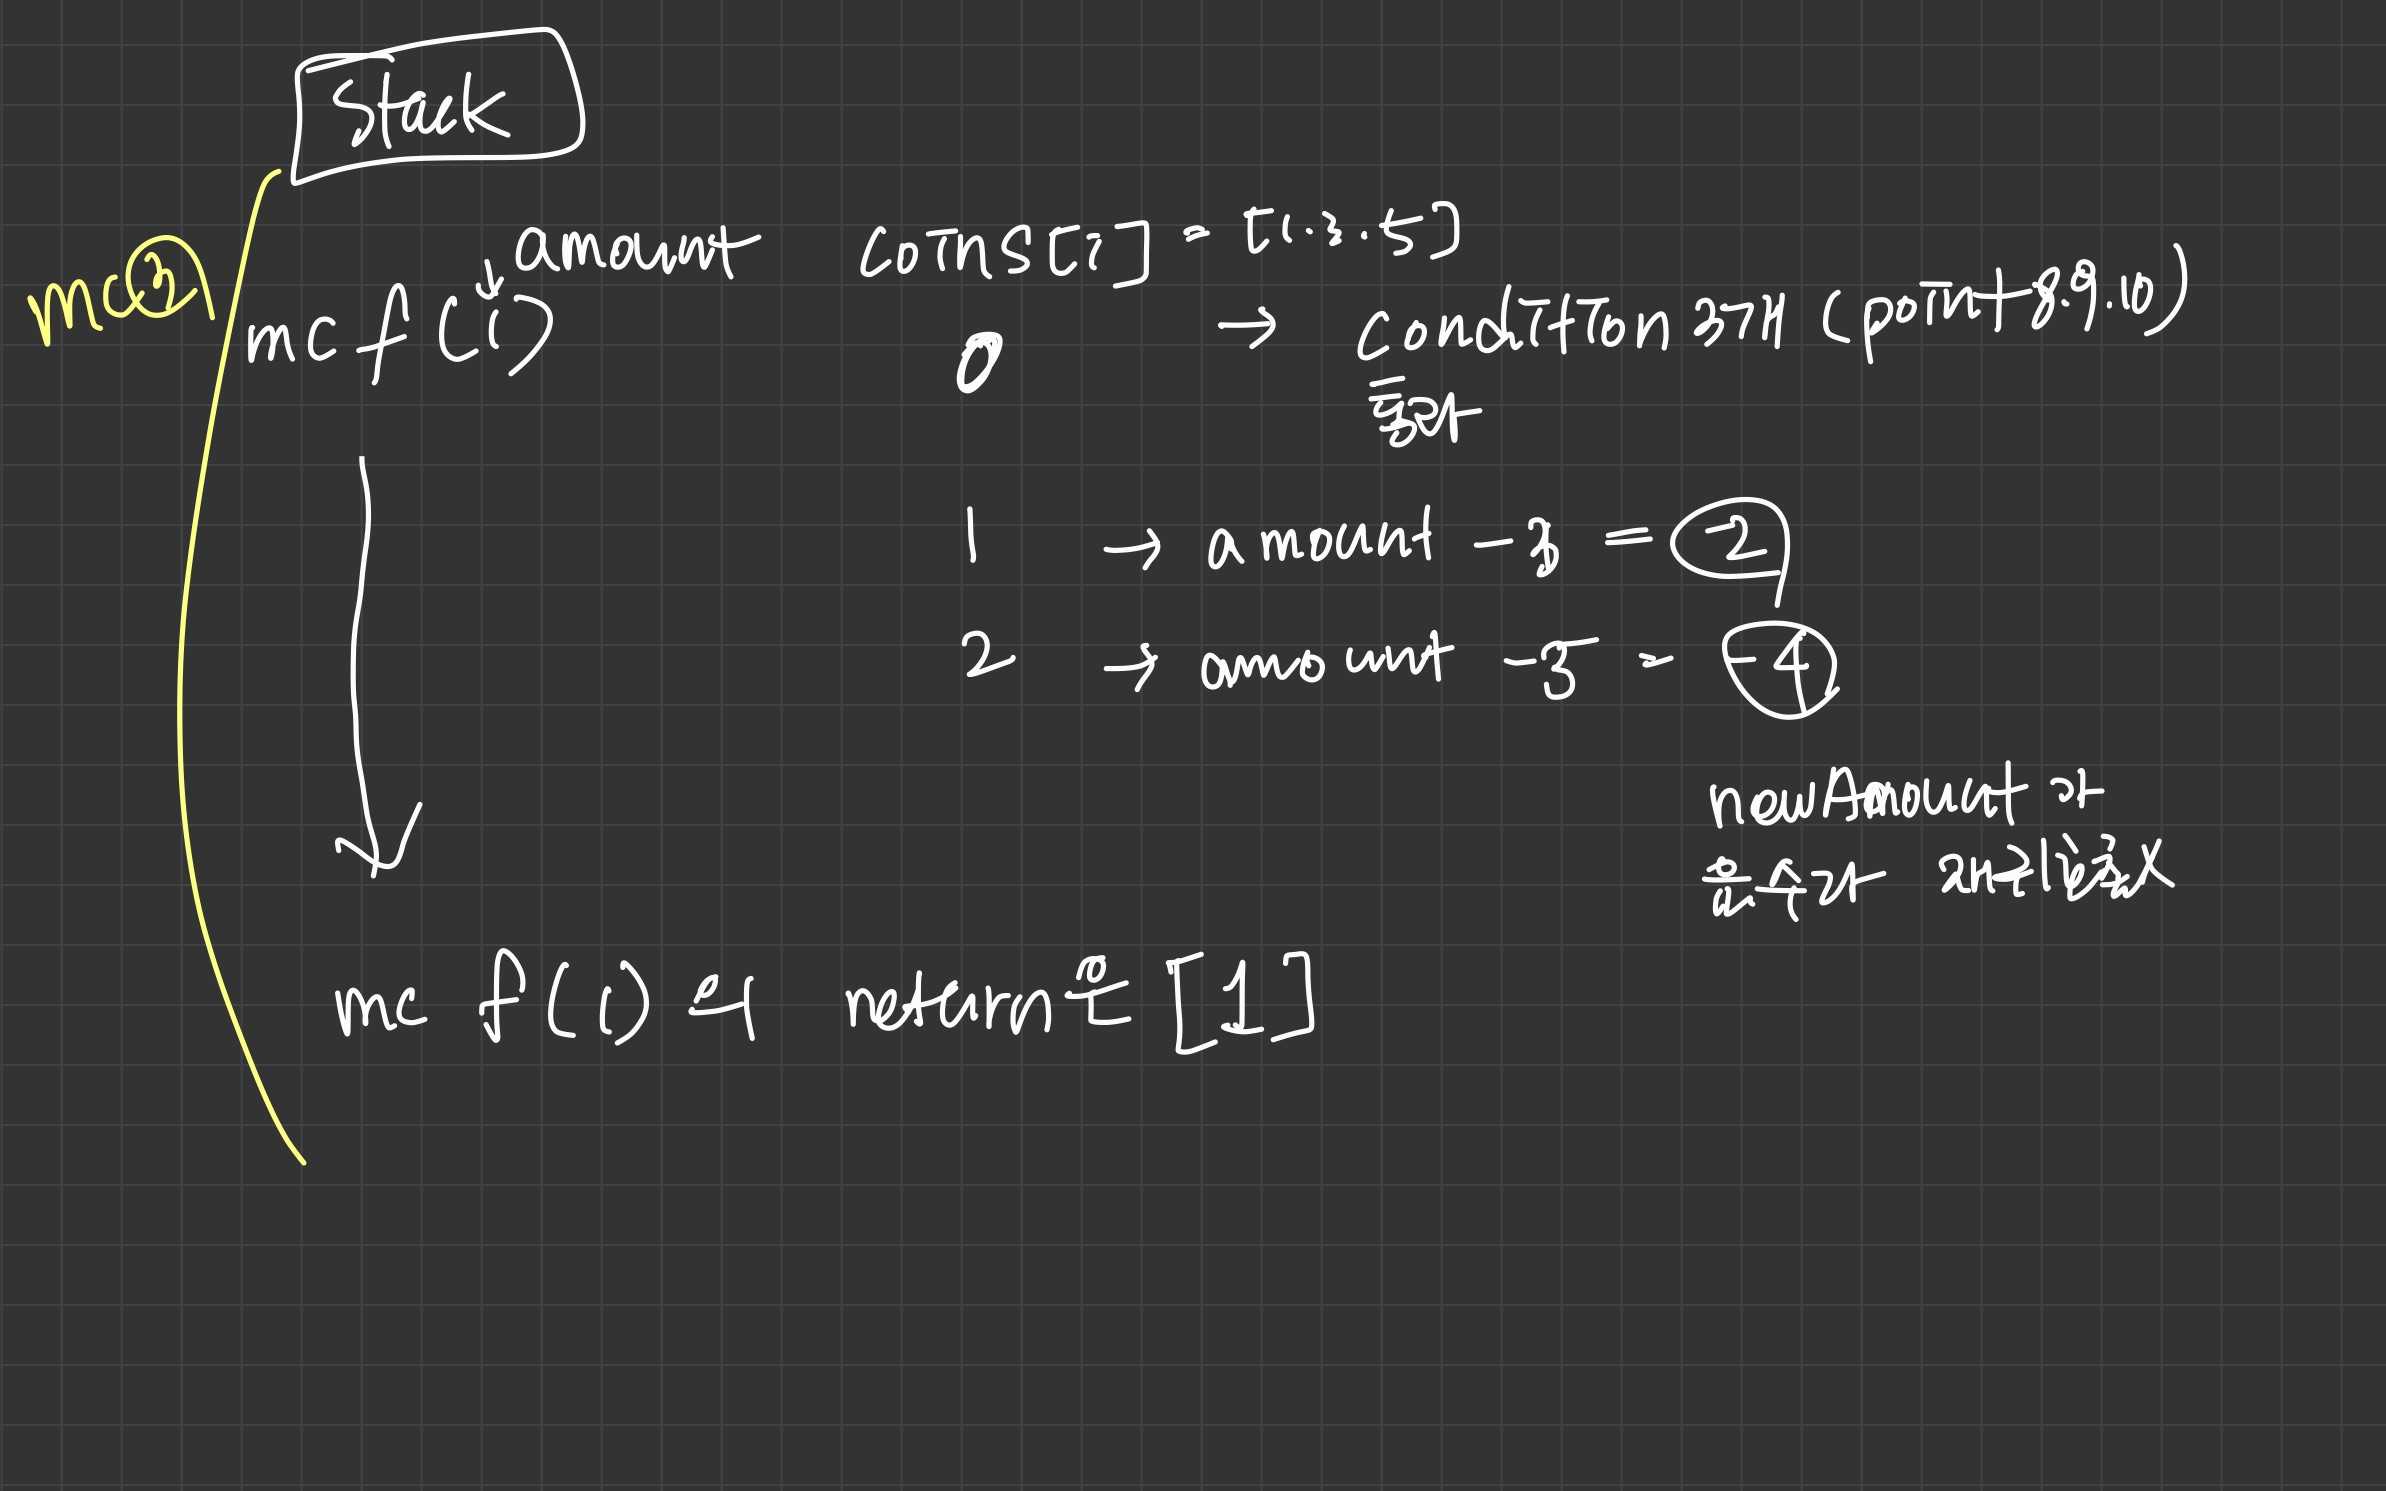 Stack
mc②
amount
coins[i] = [1.3.5]
mc f(1)
0 → condition 3개 (point 8.9.10)
통과
1 → amount - 3 = -2
2 → amount - 5 = -4
newAmount가
음수라 고려대상X
mc f(1)의 return은 [1]